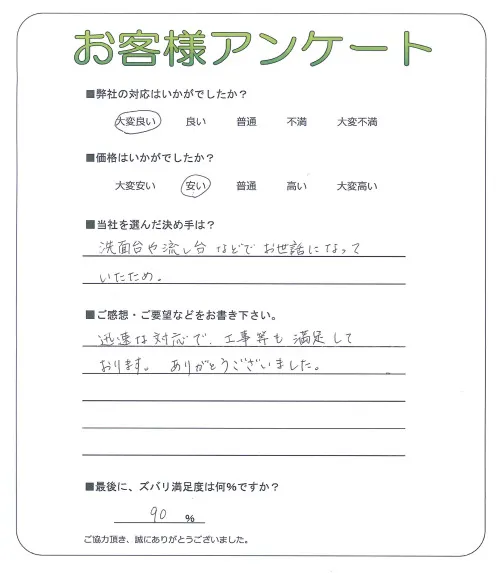 お客様アンケート
■弊社の対応はいかがでしたか？
大変良い 良い 普通 不満 大変不満
■価格はいかがでしたか？
大変安い 安い 普通 高い 大変高い
■当社を選んだ決め手は？
洗面台や流し台などでお世話になって
いたため。
■ご感想・ご要望などをお書き下さい。
迅速な対応で、工事等も満足して
おります。 ありがとうございました。
■最後に、ズバリ満足度は何％ですか？
90 ％
ご協力頂き、誠にありがとうございました。